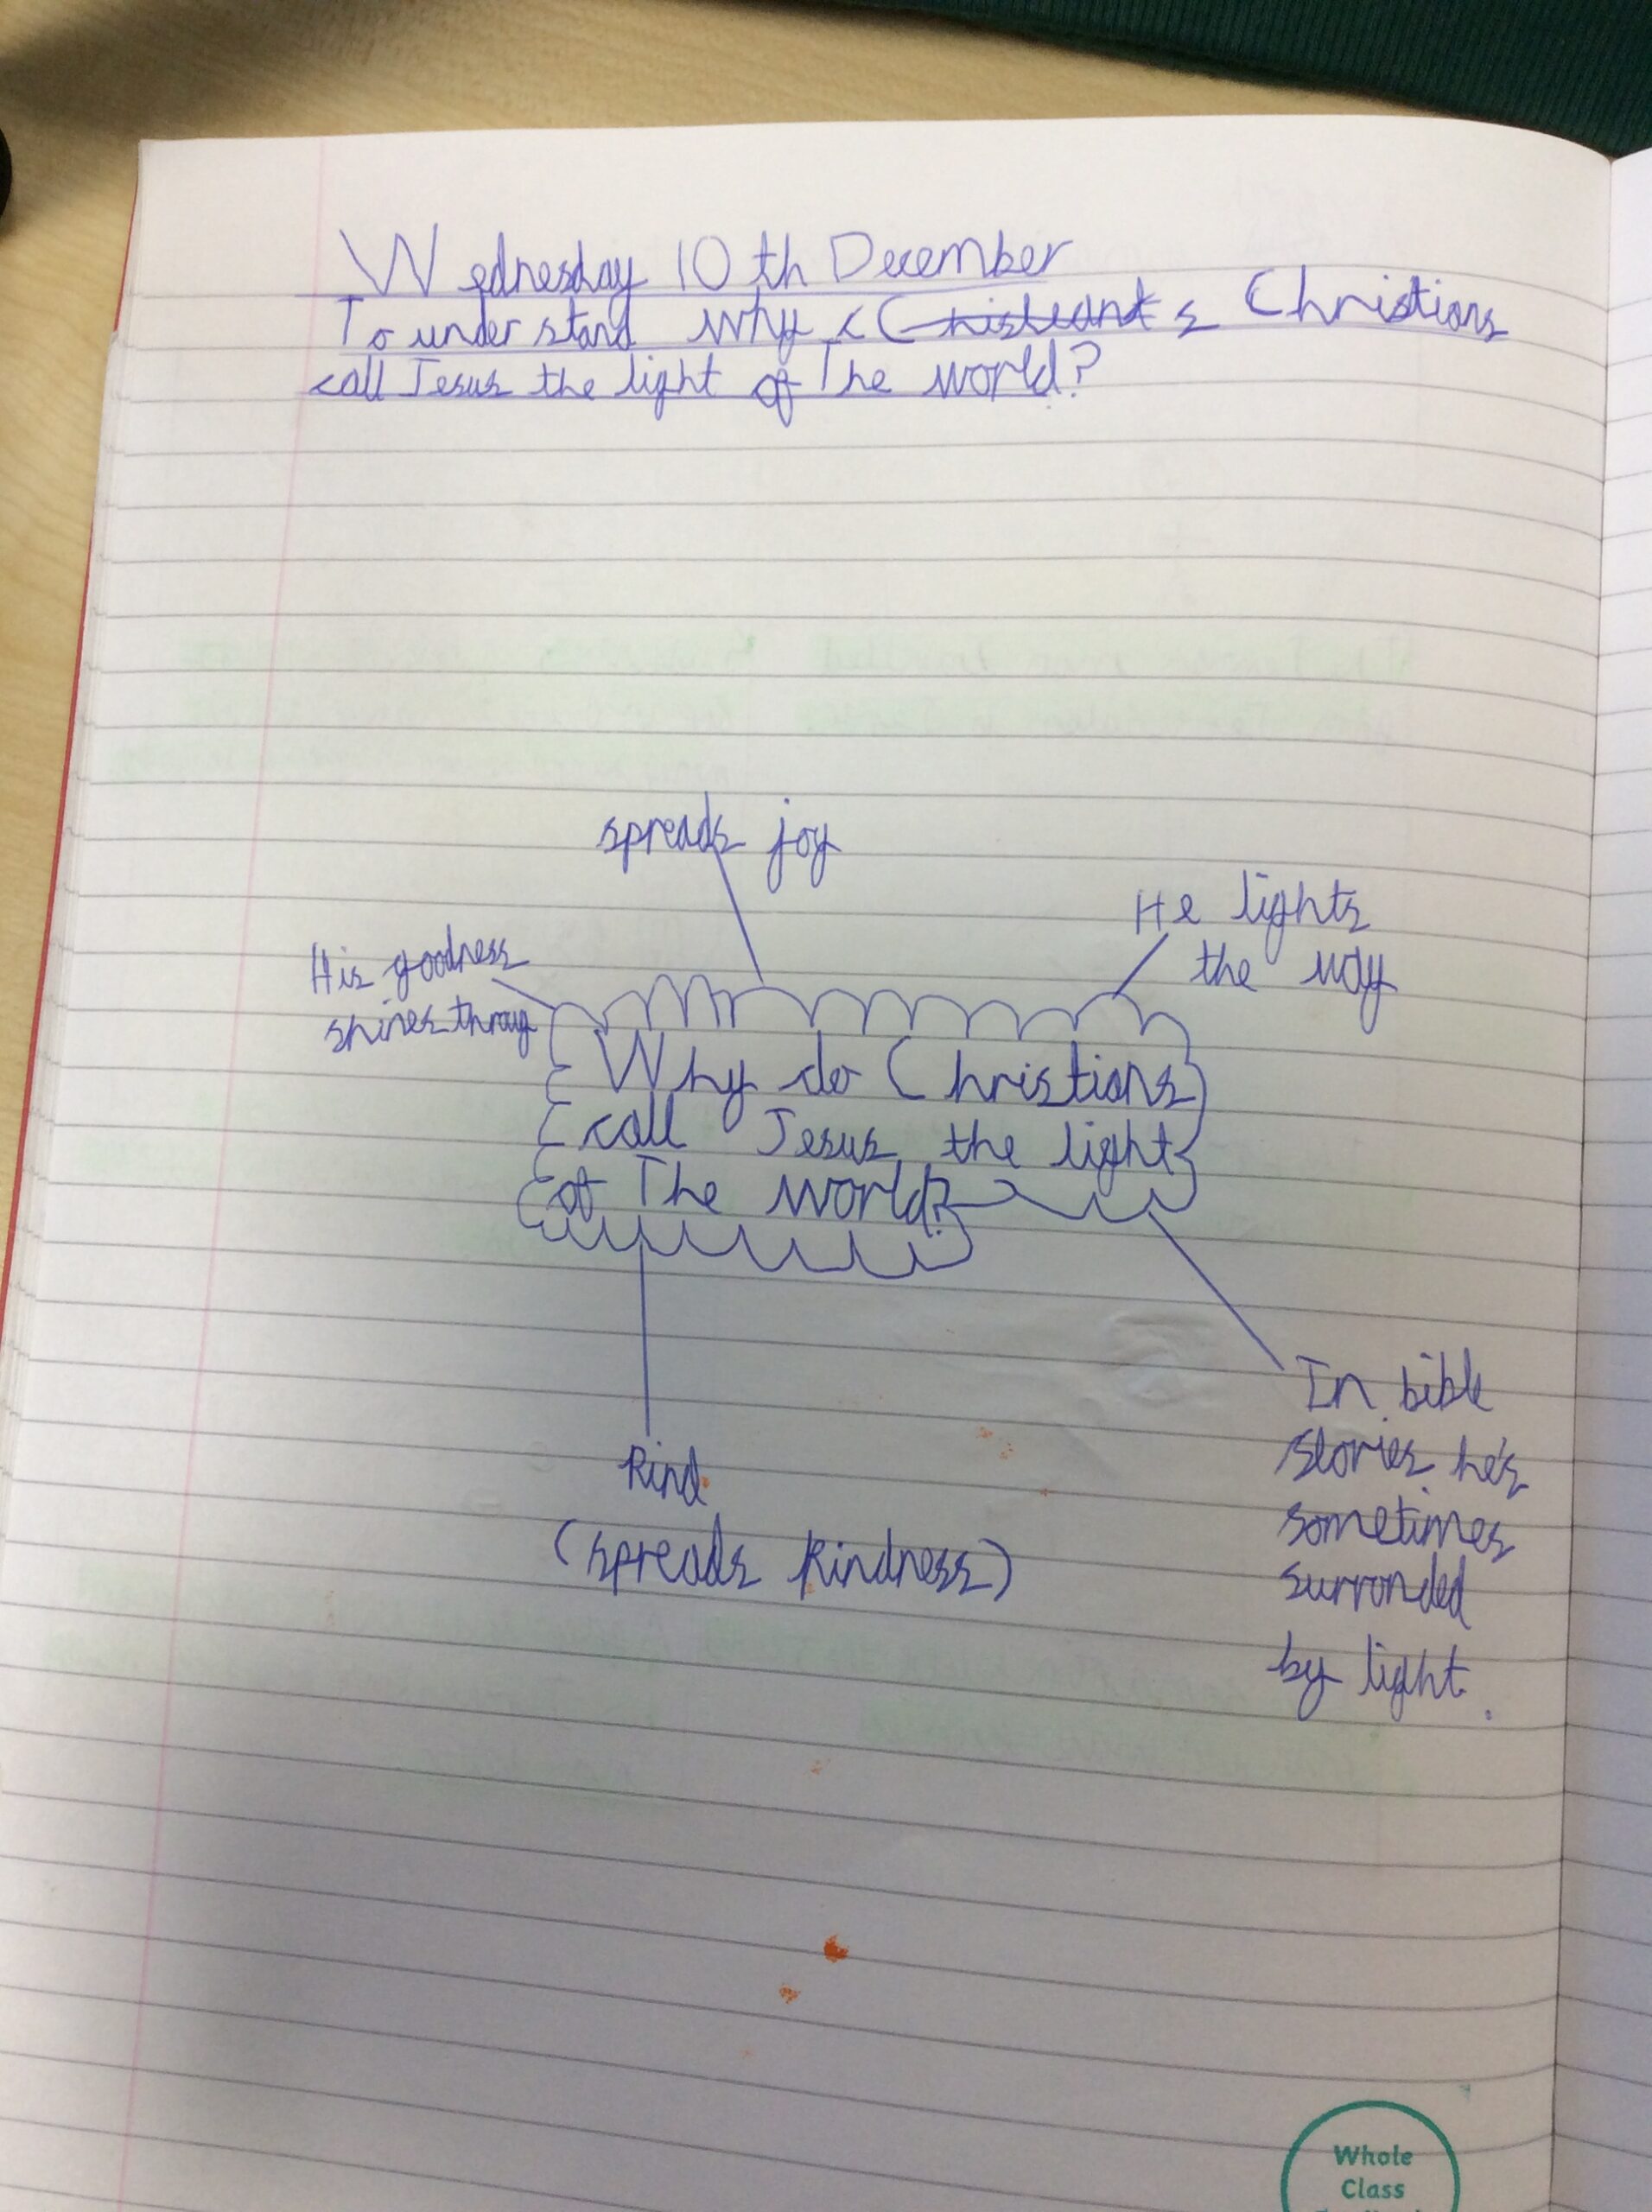 Wednesday 10th December
To understand why Christians
call Jesus the light of The world?
spreads joy
He lights
the way
His goodness
shines throug
Why do Christians
call Jesus the light
of The world?
Kind
(spreads kindness)
In bible
stories he's
sometimes
surronded
by light.
Whole
Class